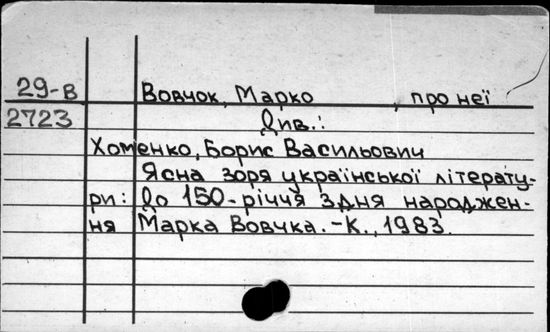 29-В Вовчок, Марко , про неї
2723 Див.:
Хоменко, Борис Васильович
Ясна зоря української літерату-
ри: До 150-річчя з дня народжен-
ня Марка Вовчка. -К., 1983.